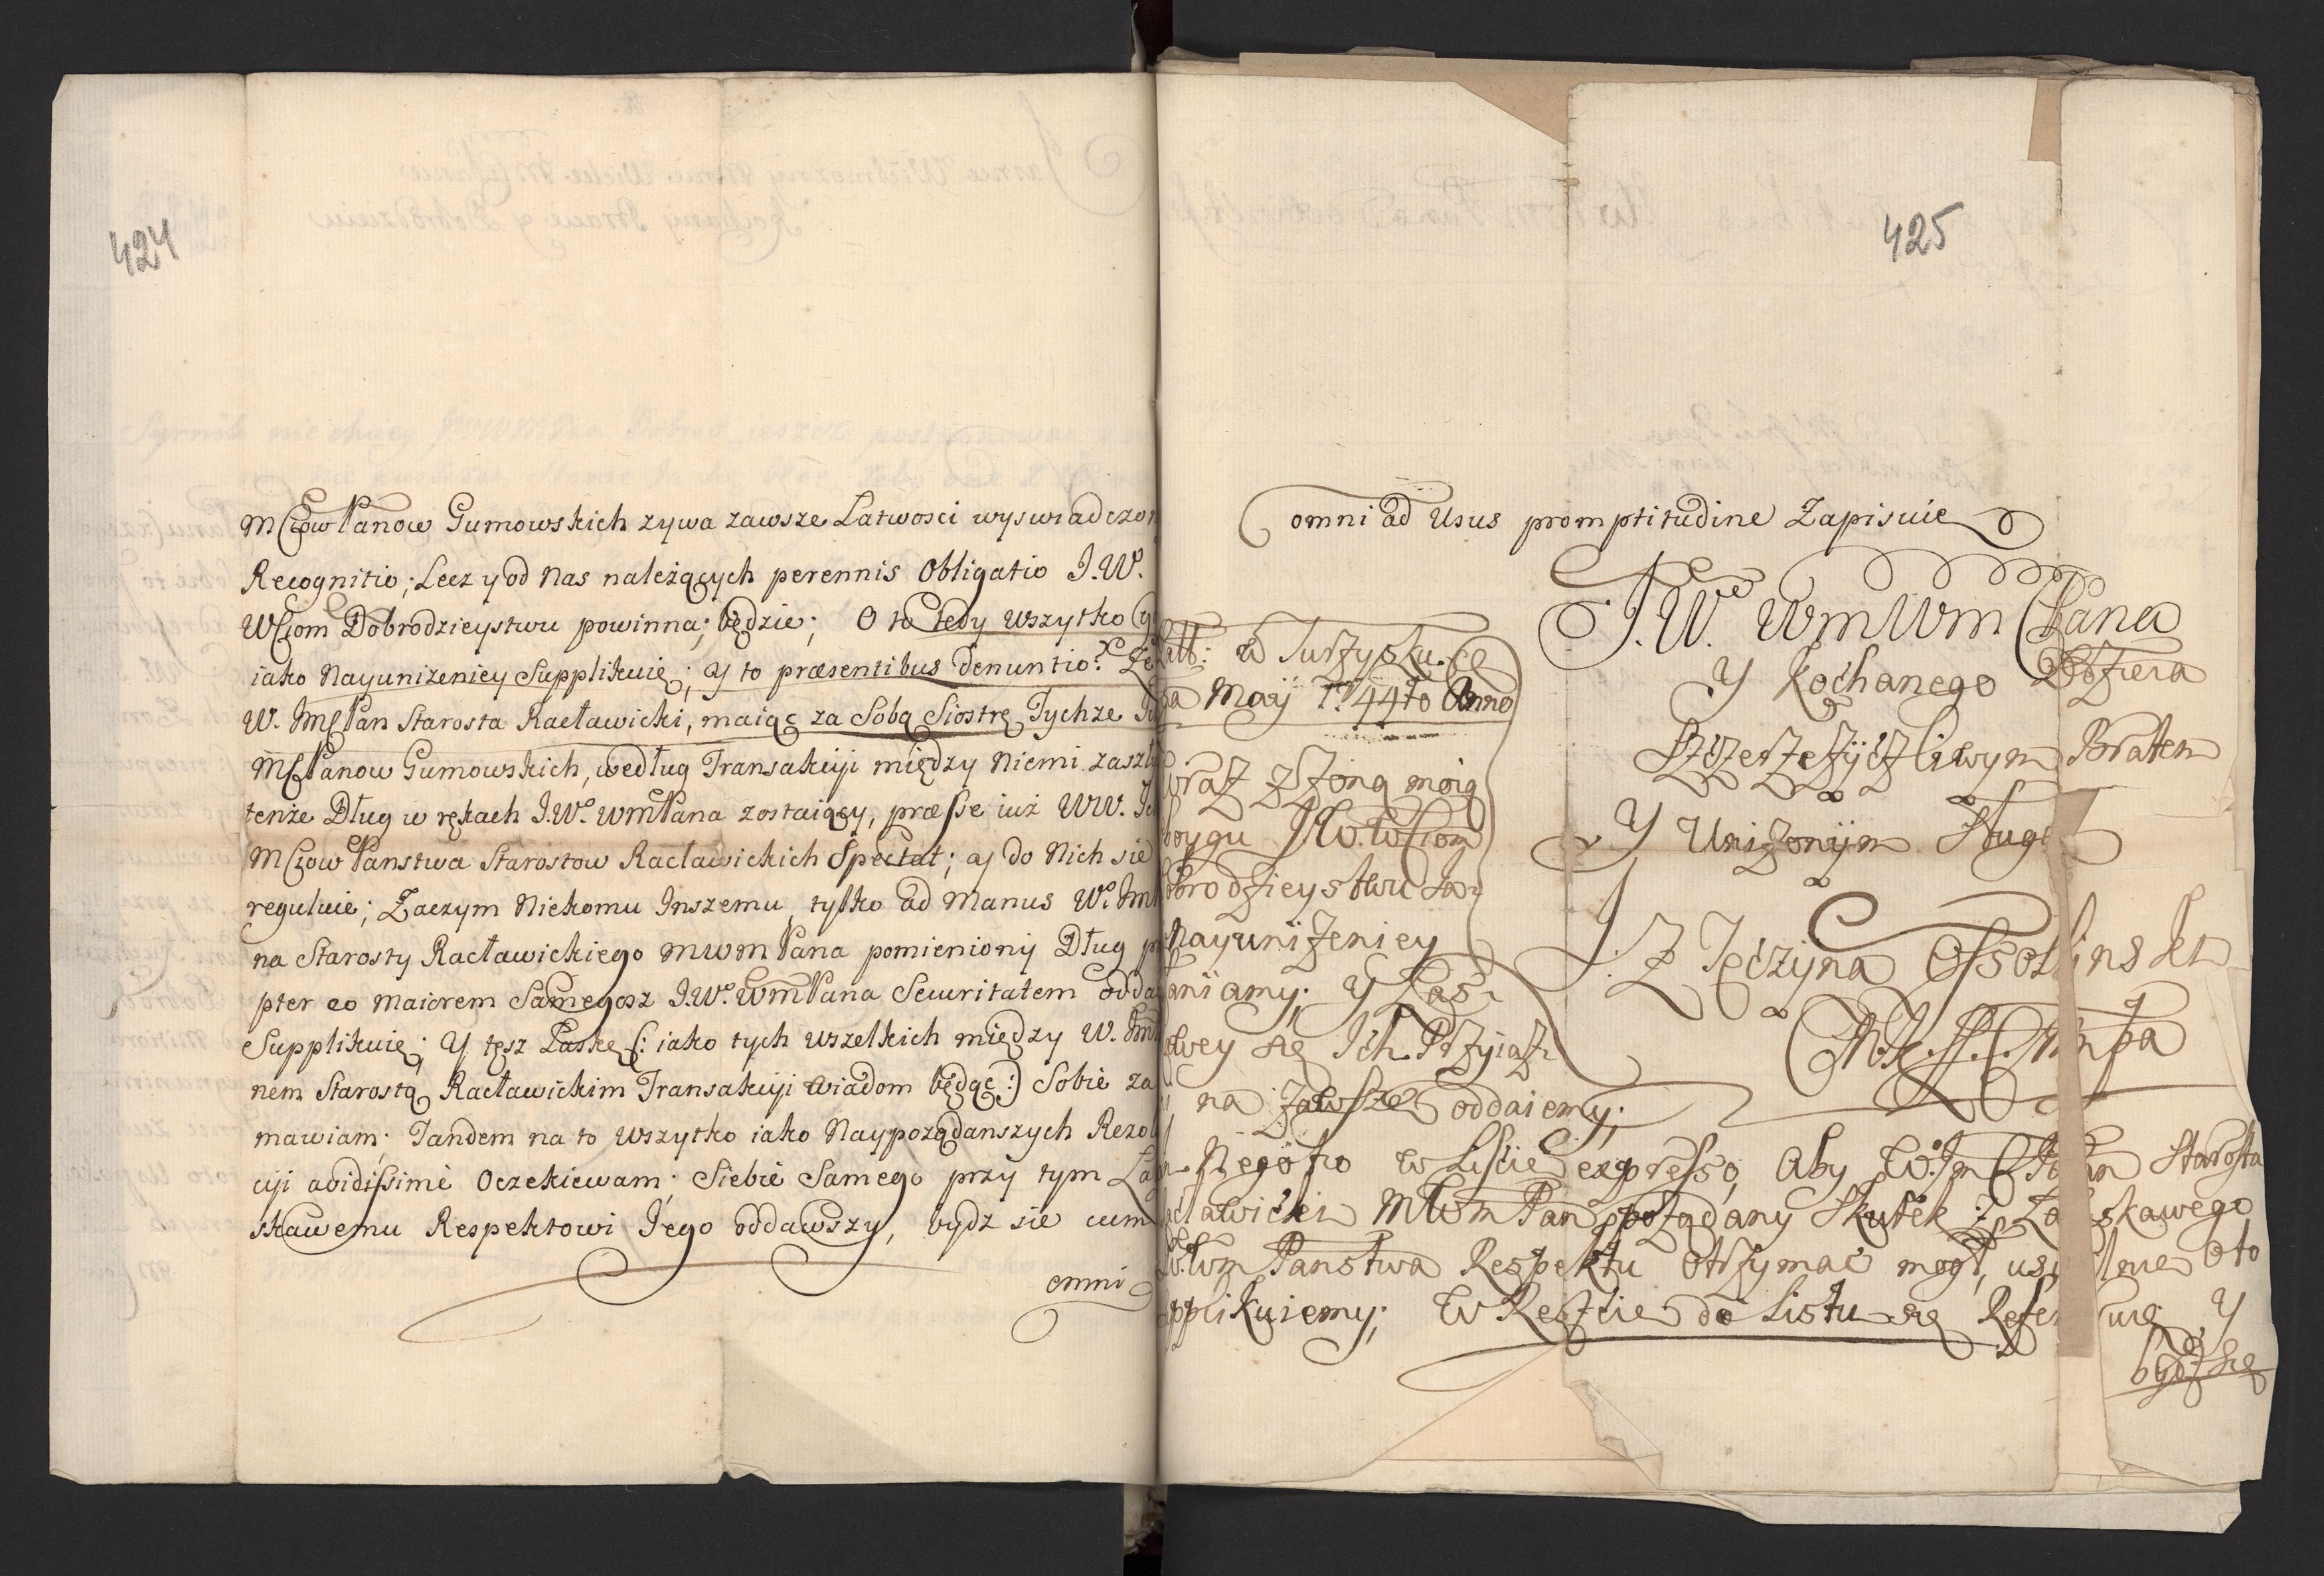 424
MCżow Panow Gumowskich zywa zawsze Łatwosci wyswiadczon
Recognitio; Lecz y od Nas należących perennis Obligatio J.W.
WCiom Dobrodzieystwu powinna będzie; O to tedy wszytko
iako Nayuniżeniey Supplikuię; y to præsentibus denuntio. Że
W. JmCPan Starosta Racławicki, maiąc za Sobą Siostrę Tychże
MCPanow Gumowskich, według Transakcyi między Niemi zaszłe
tenże Dług w rękach J.Wo. WmPana zostaiący, præsse iuż WW.
MCżow Panstwa Starostow Racławickich Spectat; ay do Nich się
reguluie; Zaczym Nikomu Inszemu, tylko ad Manus Wo. Jm
na Starosty Racławickiego MWM Pana pomieniony Dług
pter eo maiorem Samegosz J.Wo. WmPana Securitatem odda
Supplikuię; Y tęsz Łaskę (: iako tych wszelkich między W. Jm
nem Starostą Racławickim Transakcyi wiadom będąc :) Sobie za
mawiam; Tandem na to wszytko iako Naypożądanszych Rezol
cyi avidissimè Oczekiewam; Siebie Samego przy tym Ła
skawemu Respektowi Jego oddawszy, bydz się cum
omni
425
omni ad Usus promptitudine Zapisuie
J.Wo WmWm Pana
Y Kochanego
Szczerze Życzliwym Bratem
Y Uniżonym Sługą
J. Z Tęczyna Ossolinski
w Turzysku
Maij 1744to Anno
wraz z Żoną moią
J.W.WCiom
Dobrodzieystwu
Nayuniżeniey
Kłaniamy; Y Łas
kawey się Ich Przyiaz
ni, na zawsze oddaiemy;
Negotio w Liście expresso, Aby W. Jm Pan Starosta
Racławicki MWm Pan pożądany Skutek z Łaskawego
Wm Panstwa Respektu otrzymać mogł, usilnie o to
Supplikuiemy; W Reszcie do Listu się Referuię, Y
bydz się